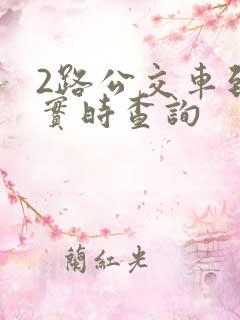 2路公交車到
實時查詢
蘭紅光